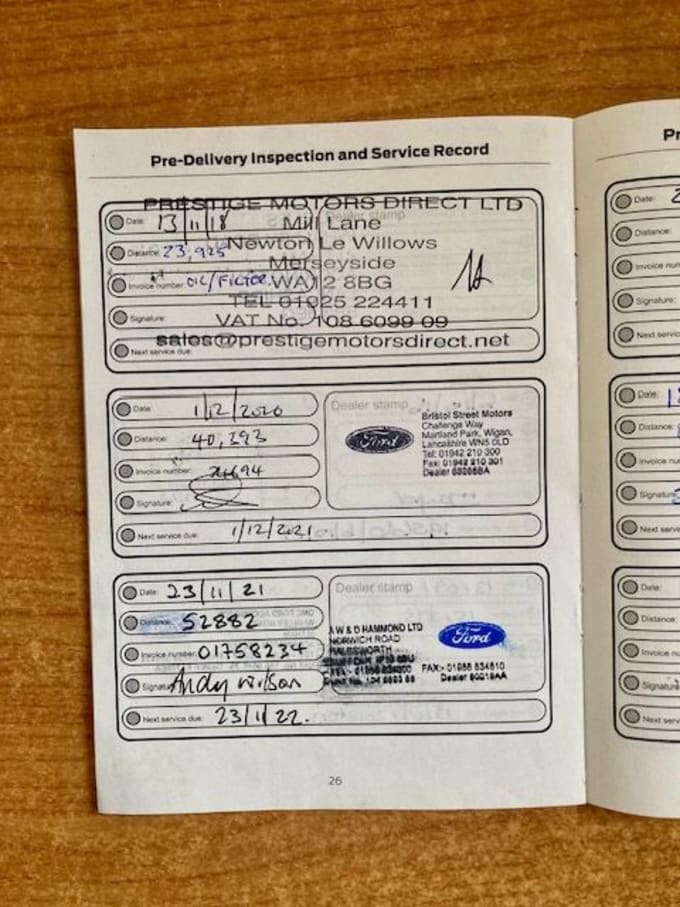 Pre-Delivery Inspection and Service Record
PRESTIGE MOTORS DIRECT LTD
Date: 13/11/18
Dealer stamp
Mill Lane
Distance: 23,925
Newton Le Willows
Merseyside
Invoice number: OIL/FILTER.
WA12 8BG
TEL 01925 224411
Signature:
VAT No. 108 6099 09
sales@prestigemotorsdirect.net
Next service due:
Date: 1/12/2020
Distance: 40,393
Invoice number:
Signature:
Next service due: 1/12/2021
Dealer stamp
Ford
Bristol Street Motors
Challenge Way
Martland Park, Wigan,
Lancashire WN5 0LD
Tel: 01942 210 300
Fax: 01942 210 301
Dealer
Date: 23/11/21
Distance: 52882
Invoice number: 01758234
Signature: Andy Wilson
Next service due: 23/11/22.
Dealer stamp
A W & D HAMMOND LTD
NORWICH ROAD
HALESWORTH
Ford
FAX:- 01986 834510
Dealer
26
Pr
Date: 2
Distance:
Invoice num
Signature:
Next servic
Date:
Distance:
Invoice nu
Signature
Next serv
Date:
Distance:
Invoice nu
Signature
Next serv